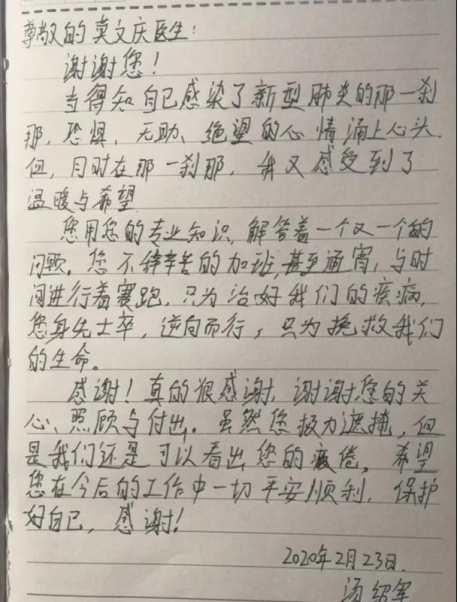 尊敬的莫文庆医生：
谢谢您！
当得知自己感染了新型肺炎的那一刹
那，恐惧、无助、绝望的心情涌上心头
但，同时在那一刹那，我又感受到了
温暖与希望
您用您的专业知识，解答着一个又一个的
问题。您不辞辛苦的加班，甚至通宵，与时
间进行着赛跑，只为治好我们的疾病，
您身先士卒，逆向而行，只为挽救我们
的生命。
感谢！真的很感谢，谢谢您的关
心、照顾与付出。虽然您极力遮掩，但
是我们还是可以看出您的疲倦，希望
您在今后的工作中一切平安顺利，保护
好自己，感谢！
2020年2月23日.
汤绍军